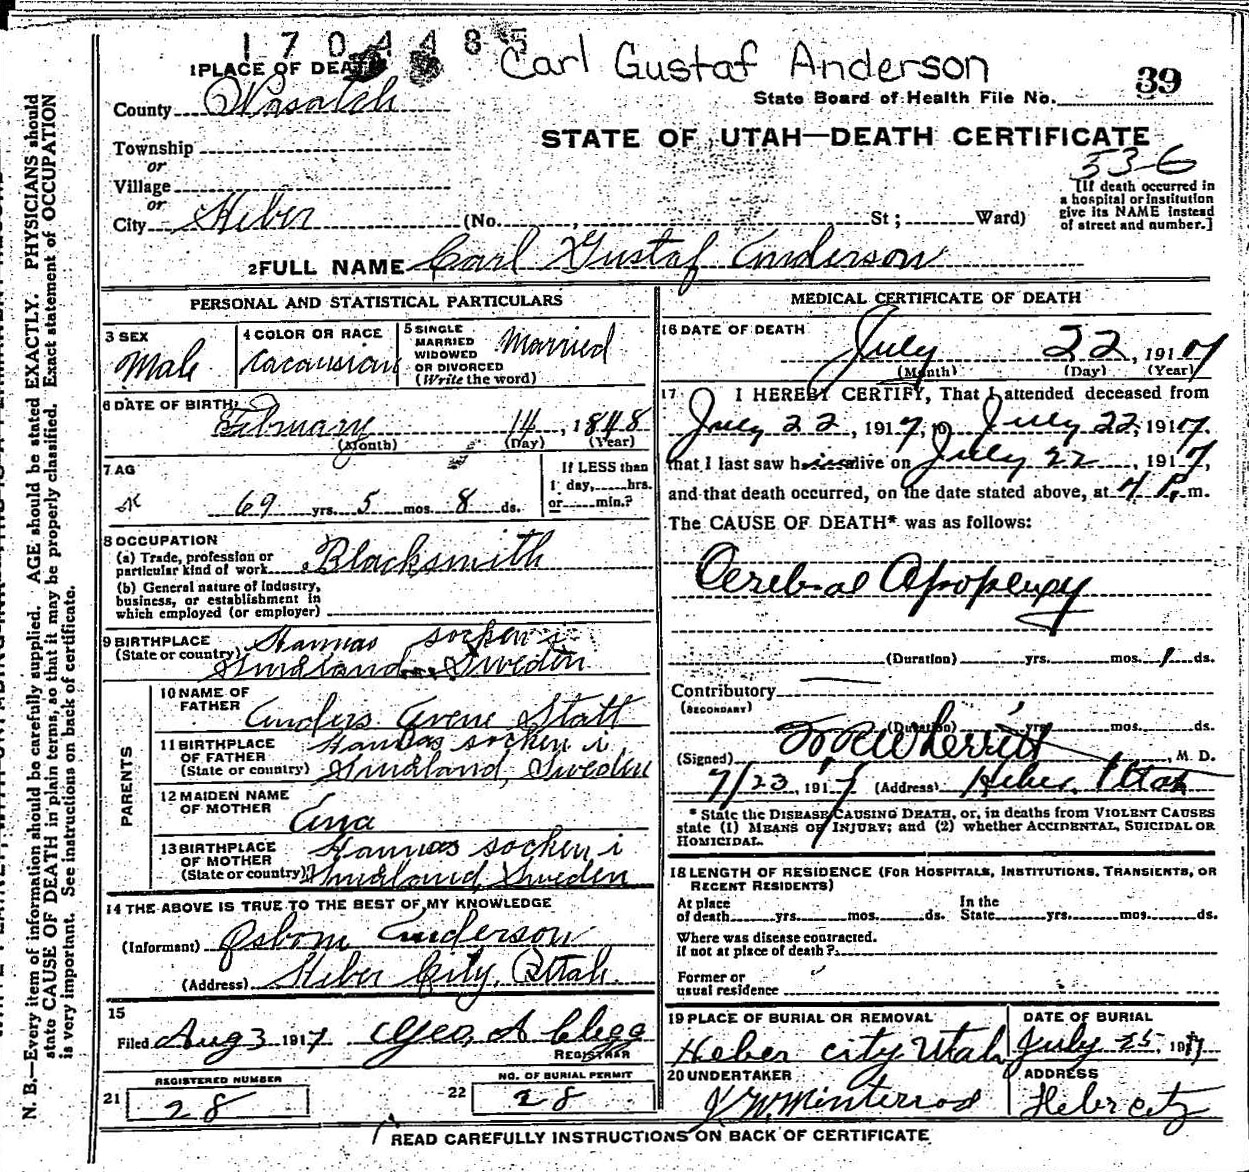 1704485
Carl Gustaf Anderson
39
State Board of Health File No.
1 PLACE OF DEATH
County Wasatch
STATE OF UTAH—DEATH CERTIFICATE
Township
or
Village
or
City Heber (No. , St; Ward)
536
[If death occurred in
a hospital or institution
give its NAME instead
of street and number.]
2 FULL NAME Carl Gustaf Anderson
PERSONAL AND STATISTICAL PARTICULARS
3 SEX
Male
4 COLOR OR RACE
Cacausian
5 SINGLE
MARRIED
WIDOWED
OR DIVORCED
(Write the word)
Married
6 DATE OF BIRTH
February 14, 1848
(Month) (Day) (Year)
7 AG
69 yrs. 5 mos. 8 ds.
If LESS than
1 day, hrs.
or min.?
8 OCCUPATION
(a) Trade, profession or
particular kind of work Blacksmith
(b) General nature of industry,
business, or establishment in
which employed (or employer)
9 BIRTHPLACE
(State or country)
Hannas socken i
Smidland Sweden
PARENTS
10 NAME OF
FATHER
Anders Statt
11 BIRTHPLACE
OF FATHER
(State or country)
Hannas socken i
Smidland, Sweden
12 MAIDEN NAME
OF MOTHER
13 BIRTHPLACE
OF MOTHER
(State or country)
Hannas socken i
Smidland, Sweden
14 THE ABOVE IS TRUE TO THE BEST OF MY KNOWLEDGE
(Informant) Osborn Anderson
(Address) Heber City, Utah.
15
Filed Aug 3 1917 Geo A Clegg
REGISTRAR
REGISTERED NUMBER
21 28
NO. OF BURIAL PERMIT
22 28
MEDICAL CERTIFICATE OF DEATH
16 DATE OF DEATH
July 22, 1917
(Month) (Day) (Year)
17 I HEREBY CERTIFY, That I attended deceased from
July 22, 1917, to July 22, 1917.
that I last saw him alive on July 22, 1917,
and that death occurred, on the date stated above, at P. m.
The CAUSE OF DEATH* was as follows:
Cerebral Apoplexy
(Duration) yrs. mos. 1 ds.
Contributory
(SECONDARY)
(Duration) yrs. mos. ds.
(Signed) Wherritt, M. D.
7/23, 1917 (Address) Heber, Utah
* State the DISEASE CAUSING DEATH, or, in deaths from VIOLENT CAUSES
state (1) MEANS OF INJURY; and (2) whether ACCIDENTAL, SUICIDAL OR
HOMICIDAL.
18 LENGTH OF RESIDENCE (FOR HOSPITALS, INSTITUTIONS, TRANSIENTS, OR
RECENT RESIDENTS)
At place
of death yrs. mos. ds.
In the
State yrs. mos. ds.
Where was disease contracted.
if not at place of death?
Former or
usual residence
19 PLACE OF BURIAL OR REMOVAL
Heber city Utah
DATE OF BURIAL
July 25, 1917
20 UNDERTAKER
ADDRESS
Heber city
READ CAREFULLY INSTRUCTIONS ON BACK OF CERTIFICATE
N. B.—Every item of information should be carefully supplied. AGE should be stated EXACTLY. PHYSICIANS should
state CAUSE OF DEATH in plain terms, so that it may be properly classified. Exact statement of OCCUPATION
is very important. See instructions on back of certificate.